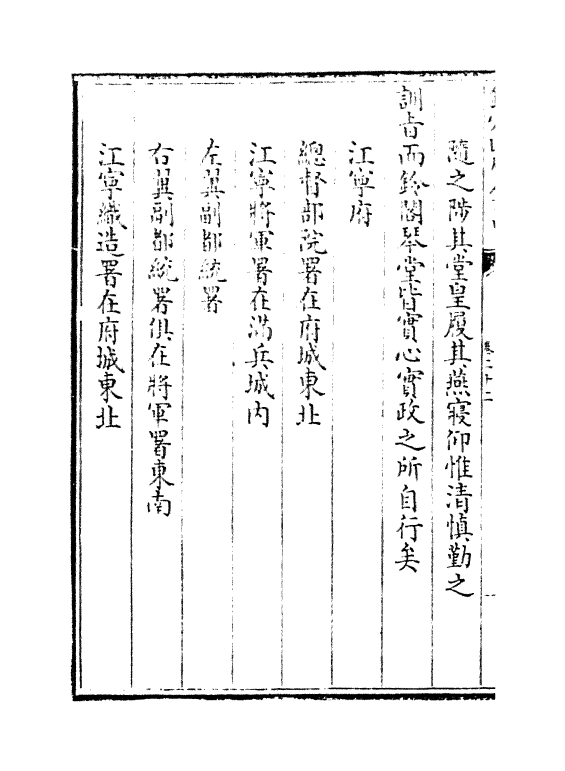 隨之陟其堂皇履其燕寢仰惟清慎勤之
訓㫖而鈴閣琴堂皆實心實政之所自行矣
江寧府
總督部院署在府城東北
江寧將軍署在滿兵城内
左翼副都統署
右翼副都統署俱在將軍署東南
江寧織造署在府城東北